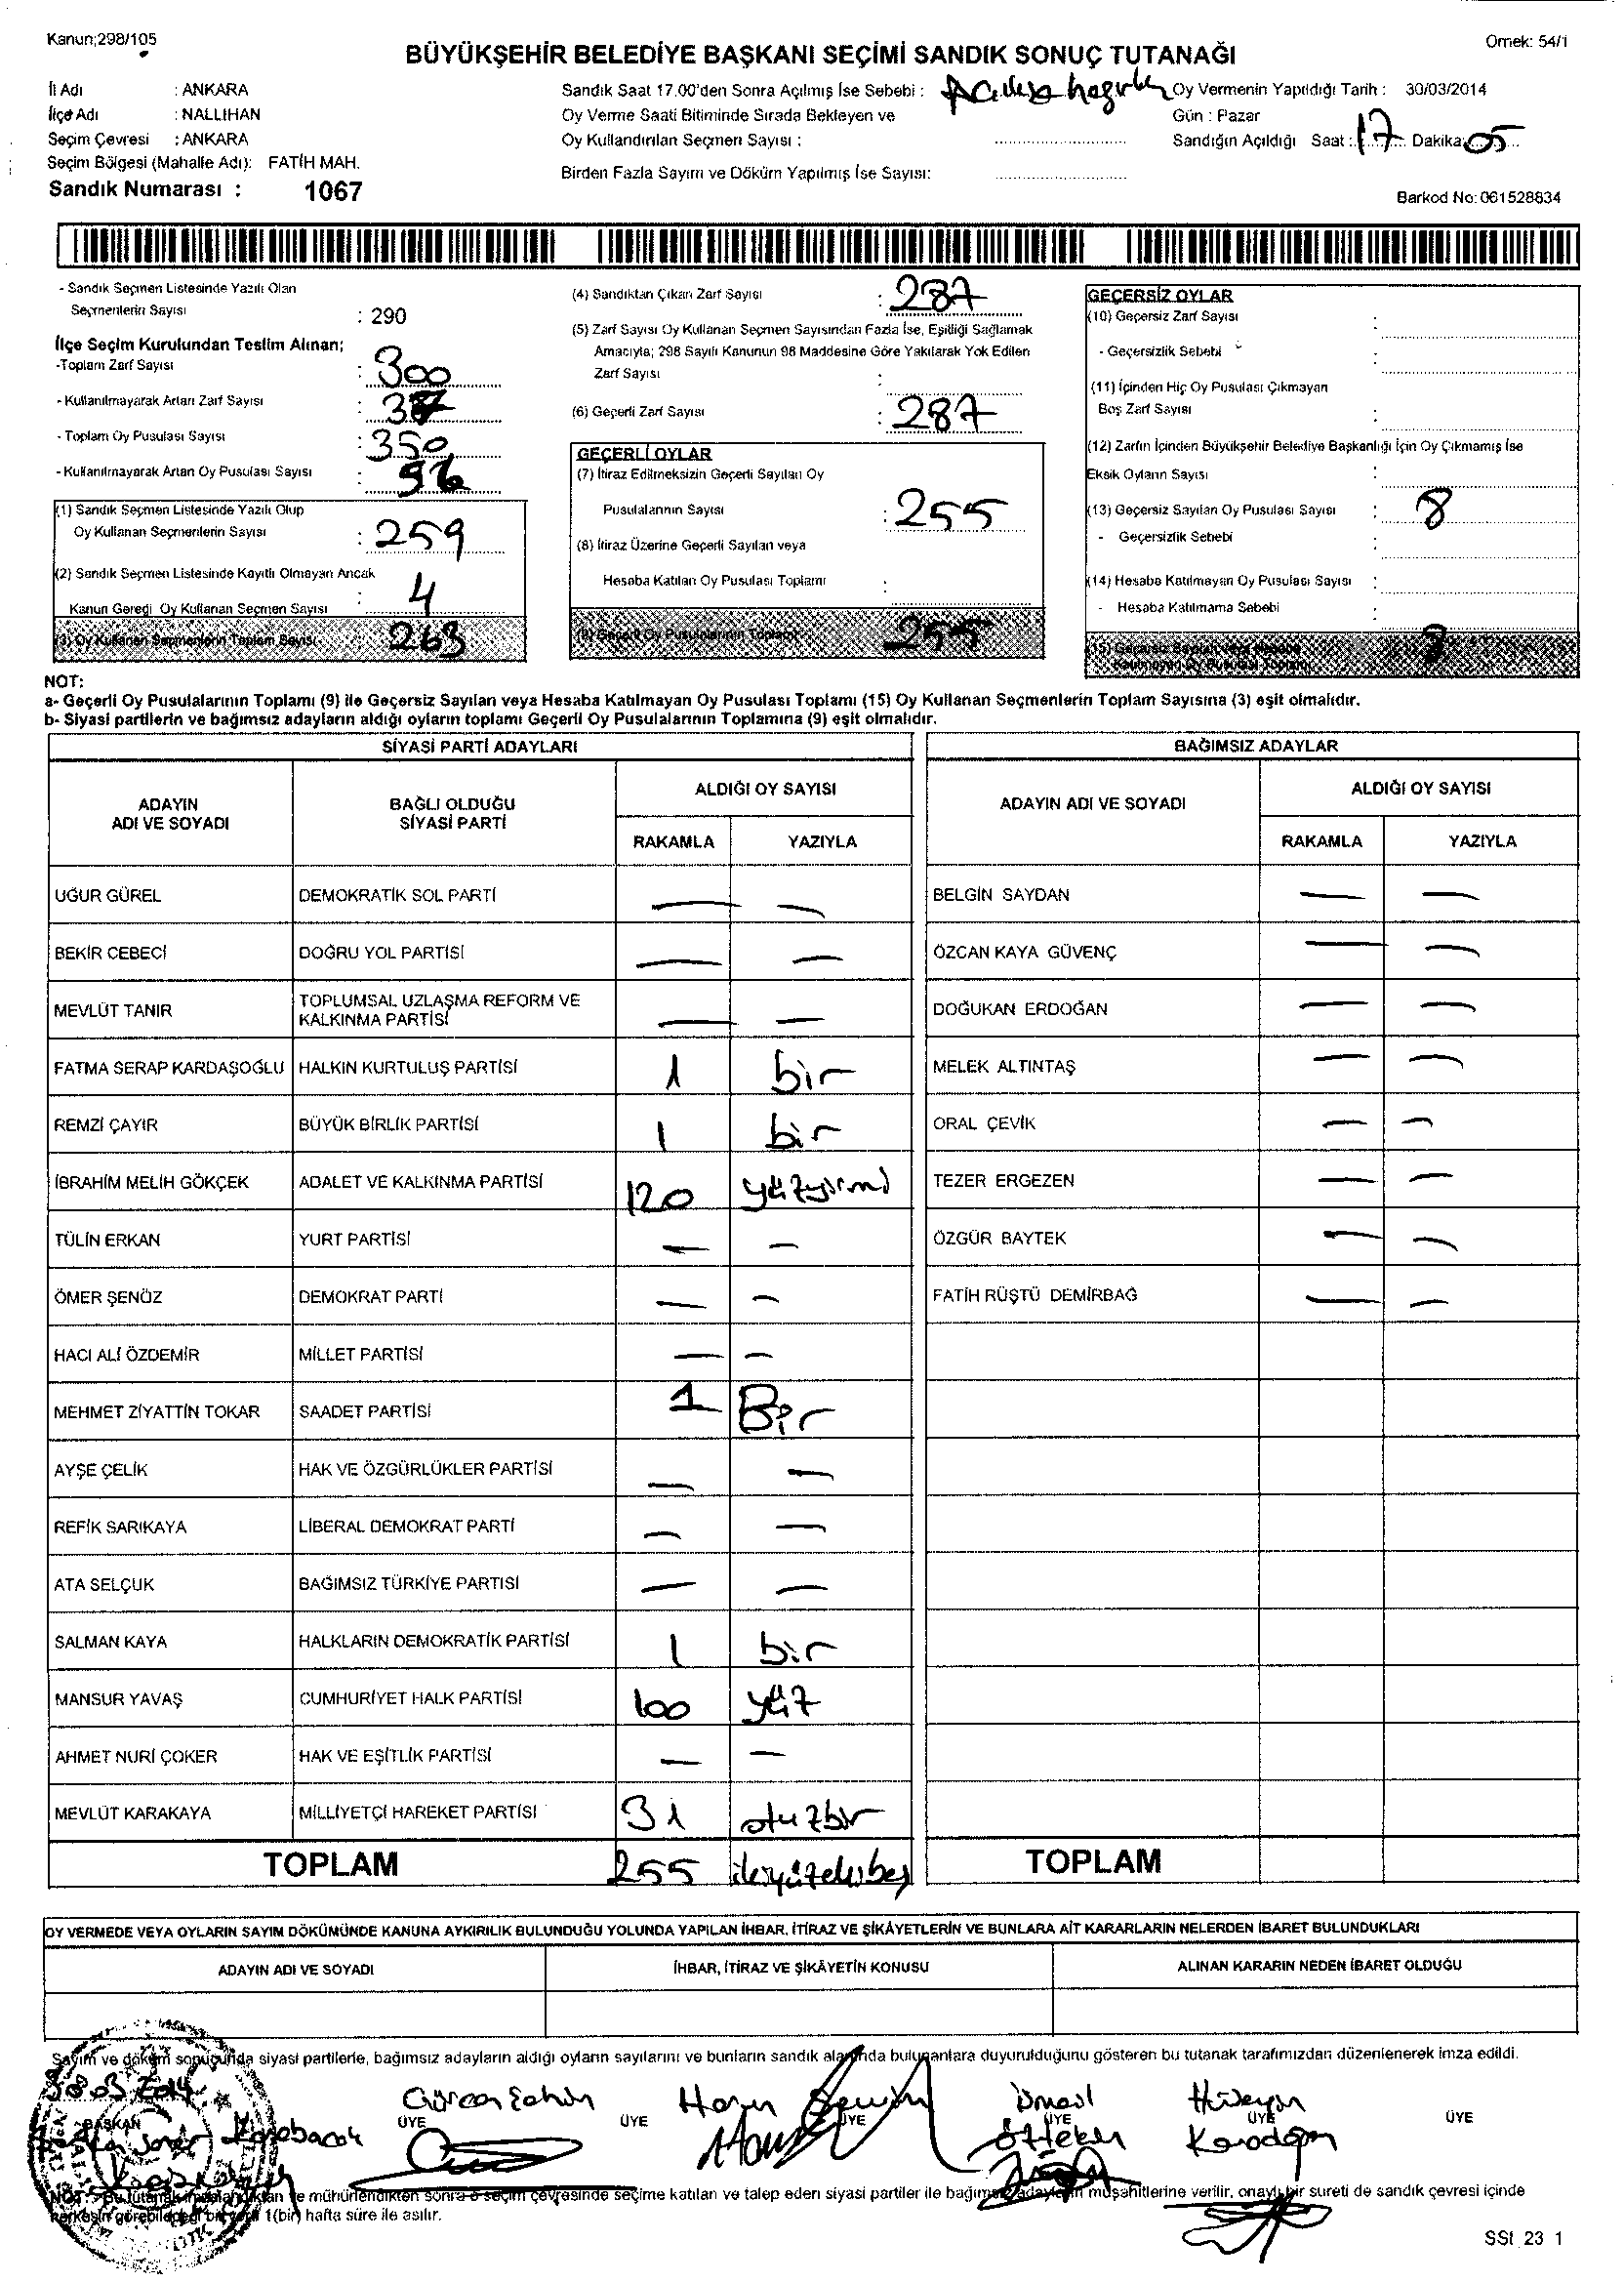 Kanun;298/105
Örnek: 54/1
BÜYÜKŞEHİR BELEDİYE BAŞKANI SEÇİMİ SANDIK SONUÇ TUTANAĞI
İl Adı : ANKARA
İlçe Adı : NALLIHAN
Seçim Çevresi : ANKARA
Seçim Bölgesi (Mahalle Adı): FATİH MAH.
Sandık Numarası : 1067
Sandık Saat 17.00'den Sonra Açılmış İse Sebebi :
Oy Verme Saati Bitiminde Sırada Bekleyen ve
Oy Kullandırılan Seçmen Sayısı :
Birden Fazla Sayım ve Döküm Yapılmış İse Sayısı:
Oy Vermenin Yapıldığı Tarih : 30/03/2014
Gün : Pazar
Sandığın Açıldığı Saat : 17 Dakika 05
Barkod No: 061528834
- Sandık Seçmen Listesinde Yazılı Olan
Seçmenlerin Sayısı : 290
İlçe Seçim Kurulundan Teslim Alınan;
-Toplam Zarf Sayısı : 300
- Kullanılmayarak Artan Zarf Sayısı :
- Toplam Oy Pusulası Sayısı : 350
- Kullanılmayarak Artan Oy Pusulası Sayısı :
(1) Sandık Seçmen Listesinde Yazılı Olup
Oy Kullanan Seçmenlerin Sayısı : 259
(2) Sandık Seçmen Listesinde Kayıtlı Olmayan Ancak
Kanun Gereği Oy Kullanan Seçmen Sayısı : 4
(3) Oy Kullanan Seçmenlerin Toplam Sayısı 263
(4) Sandıktan Çıkan Zarf Sayısı : 287
(5) Zarf Sayısı Oy Kullanan Seçmen Sayısından Fazla İse, Eşitliği Sağlamak
Amacıyla; 298 Sayılı Kanunun 98 Maddesine Göre Yakılarak Yok Edilen
Zarf Sayısı :
(6) Geçerli Zarf Sayısı : 287
GEÇERLİ OYLAR
(7) İtiraz Edilmeksizin Geçerli Sayılan Oy
Pusulalarının Sayısı : 255
(8) İtiraz Üzerine Geçerli Sayılan veya
Hesaba Katılan Oy Pusulası Toplamı :
(9) Geçerli Oy Pusulalarının Toplamı 255
GEÇERSİZ OYLAR
(10) Geçersiz Zarf Sayısı :
- Geçersizlik Sebebi
(11) İçinden Hiç Oy Pusulası Çıkmayan
Boş Zarf Sayısı :
(12) Zarfın İçinden Büyükşehir Belediye Başkanlığı İçin Oy Çıkmamış İse
Eksik Oyların Sayısı :
(13) Geçersiz Sayılan Oy Pusulası Sayısı : 8
- Geçersizlik Sebebi :
(14) Hesaba Katılmayan Oy Pusulası Sayısı :
- Hesaba Katılmama Sebebi :
(15) Geçersiz Sayılan veya Hesaba
Katılmayan Oy Pusulası Toplamı
NOT:
a- Geçerli Oy Pusulalarının Toplamı (9) ile Geçersiz Sayılan veya Hesaba Katılmayan Oy Pusulası Toplamı (15) Oy Kullanan Seçmenlerin Toplam Sayısına (3) eşit olmalıdır.
b- Siyasi partilerin ve bağımsız adayların aldığı oyların toplamı Geçerli Oy Pusulalarının Toplamına (9) eşit olmalıdır.
SİYASİ PARTİ ADAYLARI
ADAYIN ADI VE SOYADI
BAĞLI OLDUĞU SİYASİ PARTİ
ALDIĞI OY SAYISI
RAKAMLA YAZIYLA
UĞUR GÜREL DEMOKRATİK SOL PARTİ — —
BEKİR CEBECİ DOĞRU YOL PARTİSİ — —
MEVLÜT TANIR TOPLUMSAL UZLAŞMA REFORM VE KALKINMA PARTİSİ — —
FATMA SERAP KARDAŞOĞLU HALKIN KURTULUŞ PARTİSİ 1 bir
REMZİ ÇAYIR BÜYÜK BİRLİK PARTİSİ 1 bir
İBRAHİM MELİH GÖKÇEK ADALET VE KALKINMA PARTİSİ 120 yüzyirmi
TÜLİN ERKAN YURT PARTİSİ — —
ÖMER ŞENÖZ DEMOKRAT PARTİ — —
HACI ALİ ÖZDEMİR MİLLET PARTİSİ — —
MEHMET ZİYATTİN TOKAR SAADET PARTİSİ 1 Bir
AYŞE ÇELİK HAK VE ÖZGÜRLÜKLER PARTİSİ — —
REFİK SARIKAYA LİBERAL DEMOKRAT PARTİ — —
ATA SELÇUK BAĞIMSIZ TÜRKİYE PARTISİ — —
SALMAN KAYA HALKLARIN DEMOKRATİK PARTİSİ 1 bir
MANSUR YAVAŞ CUMHURİYET HALK PARTİSİ 100 yüz
AHMET NURİ ÇOKER HAK VE EŞİTLİK PARTİSİ — —
MEVLÜT KARAKAYA MİLLİYETÇİ HAREKET PARTİSİ 31 otuzbir
TOPLAM 255 ikiyüzellibeş
BAĞIMSIZ ADAYLAR
ADAYIN ADI VE SOYADI
ALDIĞI OY SAYISI
RAKAMLA YAZIYLA
BELGİN SAYDAN — —
ÖZCAN KAYA GÜVENÇ — —
DOĞUKAN ERDOĞAN — —
MELEK ALTINTAŞ — —
ORAL ÇEVİK — —
TEZER ERGEZEN — —
ÖZGÜR BAYTEK — —
FATİH RÜŞTÜ DEMİRBAĞ — —
TOPLAM
OY VERMEDE VEYA OYLARIN SAYIM DÖKÜMÜNDE KANUNA AYKIRILIK BULUNDUĞU YOLUNDA YAPILAN İHBAR, İTİRAZ VE ŞİKÂYETLERİN VE BUNLARA AİT KARARLARIN NELERDEN İBARET BULUNDUKLARI
ADAYIN ADI VE SOYADI
İHBAR, İTİRAZ VE ŞİKÂYETİN KONUSU
ALINAN KARARIN NEDEN İBARET OLDUĞU
Sayım ve döküm sonucunda siyasi partilerle, bağımsız adayların aldığı oyların sayılarını ve bunların sandık alanında bulunanlara duyurulduğunu gösteren bu tutanak tarafımızdan düzenlenerek imza edildi.
30.03.2014
BAŞKAN ÜYE ÜYE ÜYE ÜYE ÜYE ÜYE
Gürcan Şahin
İsmail
Hüseyin
NOT: Bu tutanak imzalandıktan ve mühürlendikten sonra o seçim çevresinde seçime katılan ve talep eden siyasi partiler ile bağımsız adayların müşahitlerine verilir, onaylı bir sureti de sandık çevresi içinde
herkesin görebileceği bir yere 1(bir) hafta süre ile asılır.
SSt_23 1